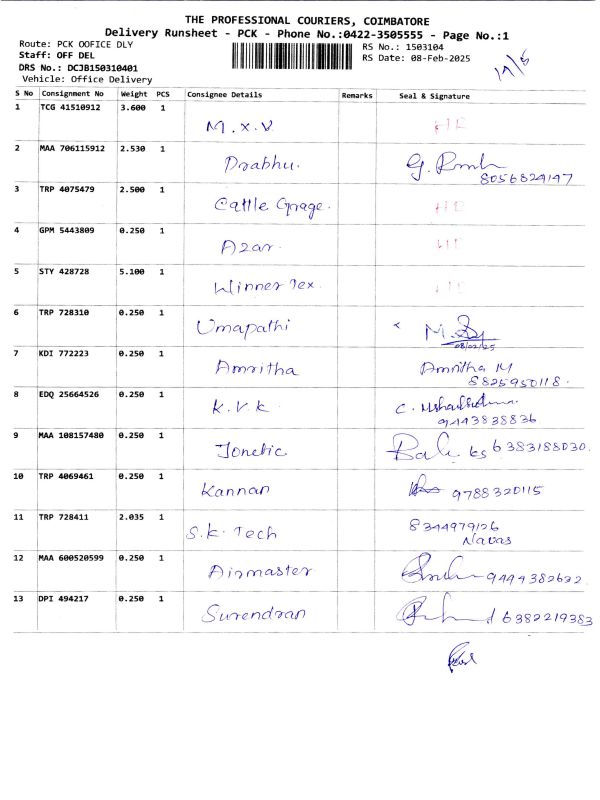 THE PROFESSIONAL COURIERS, COIMBATORE
Delivery Runsheet - PCK - Phone No.:0422-3505555 - Page No.:1
Route: PCK OOFICE DLY RS No.: 1503104
Staff: OFF DEL RS Date: 08-Feb-2025
DRS No.: DCJB150310401
Vehicle: Office Delivery
S No Consignment No Weight PCS Consignee Details Remarks Seal & Signature
1 TCG 41510912 3.600 1 M.X.V
2 MAA 706115912 2.530 1 Prabhu. G.
8056829147
3 TRP 4075479 2.500 1 Cattle Grage.
4 GPM 5443809 0.250 1 Azar.
5 STY 428728 5.100 1 Winner Tex.
6 TRP 728310 0.250 1 Umapathi M.
08/02/25
7 KDI 772223 0.250 1 Amritha Amritha M
8825950118.
8 EDQ 25664526 0.250 1 K.V.K C.
9443838836
9 MAA 108157480 0.250 1 Jonetic 6383188030.
10 TRP 4069461 0.250 1 Kannan 9788320115
11 TRP 728411 2.035 1 S.K. Tech 8344979126
Navas
12 MAA 600520599 0.250 1 Airmaster 9444382622.
13 DPI 494217 0.250 1 Surendran 6382219383